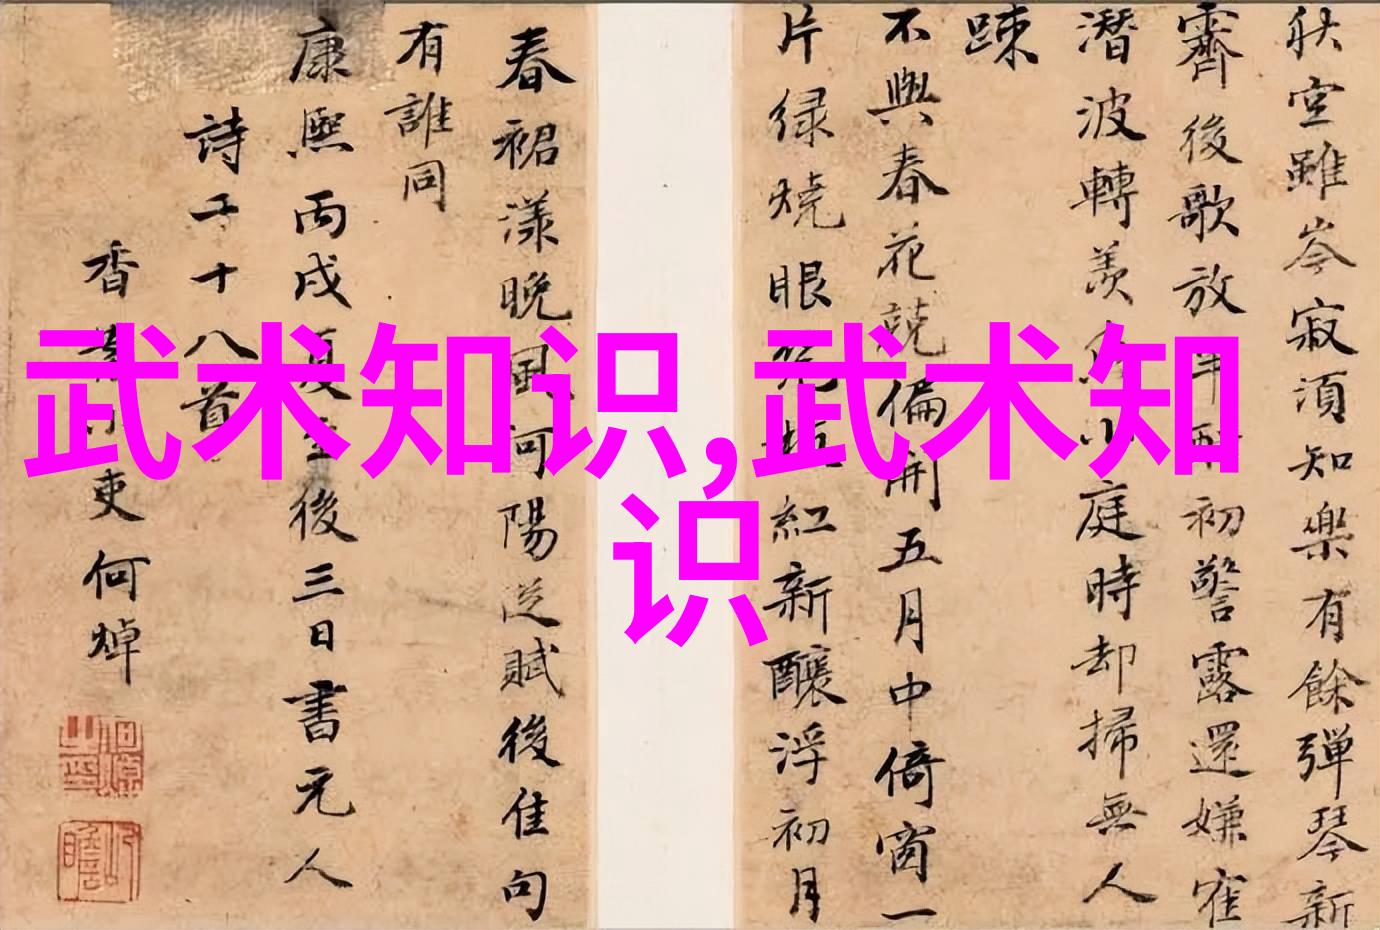 武术知识,武术知
识
秋空雖岑寂須知樂有餘彈琴新
霽後歌放
初警露還嫌
潛波轉羨
小庭時却掃無人
踈
不與春花競偏開五月中倚窗一
片緑燒眼
紅新釀浮初月
春裙漾晚風河陽從賦後佳句
有誰同
康熙丙戌夏至後三日書元人
詩二十八首
香
吏何焯